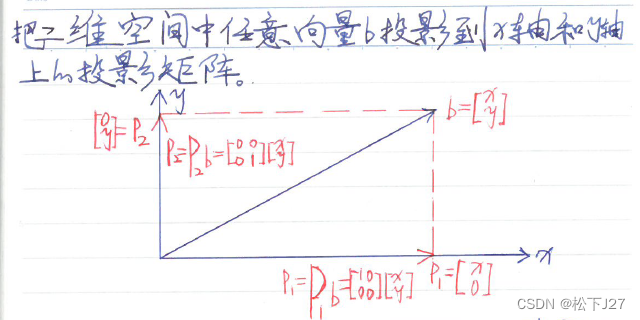 把二维空间中任意向量b投影到x轴和y轴
上的投影矩阵。
y
[0 y]=P₂
b=[x y]
P₂=P₂b=[0 0 0 1][x y]
x
P₁=P₁b=[1 0 0 0][x y]
P₁=[x 0]
CSDN @松下J27